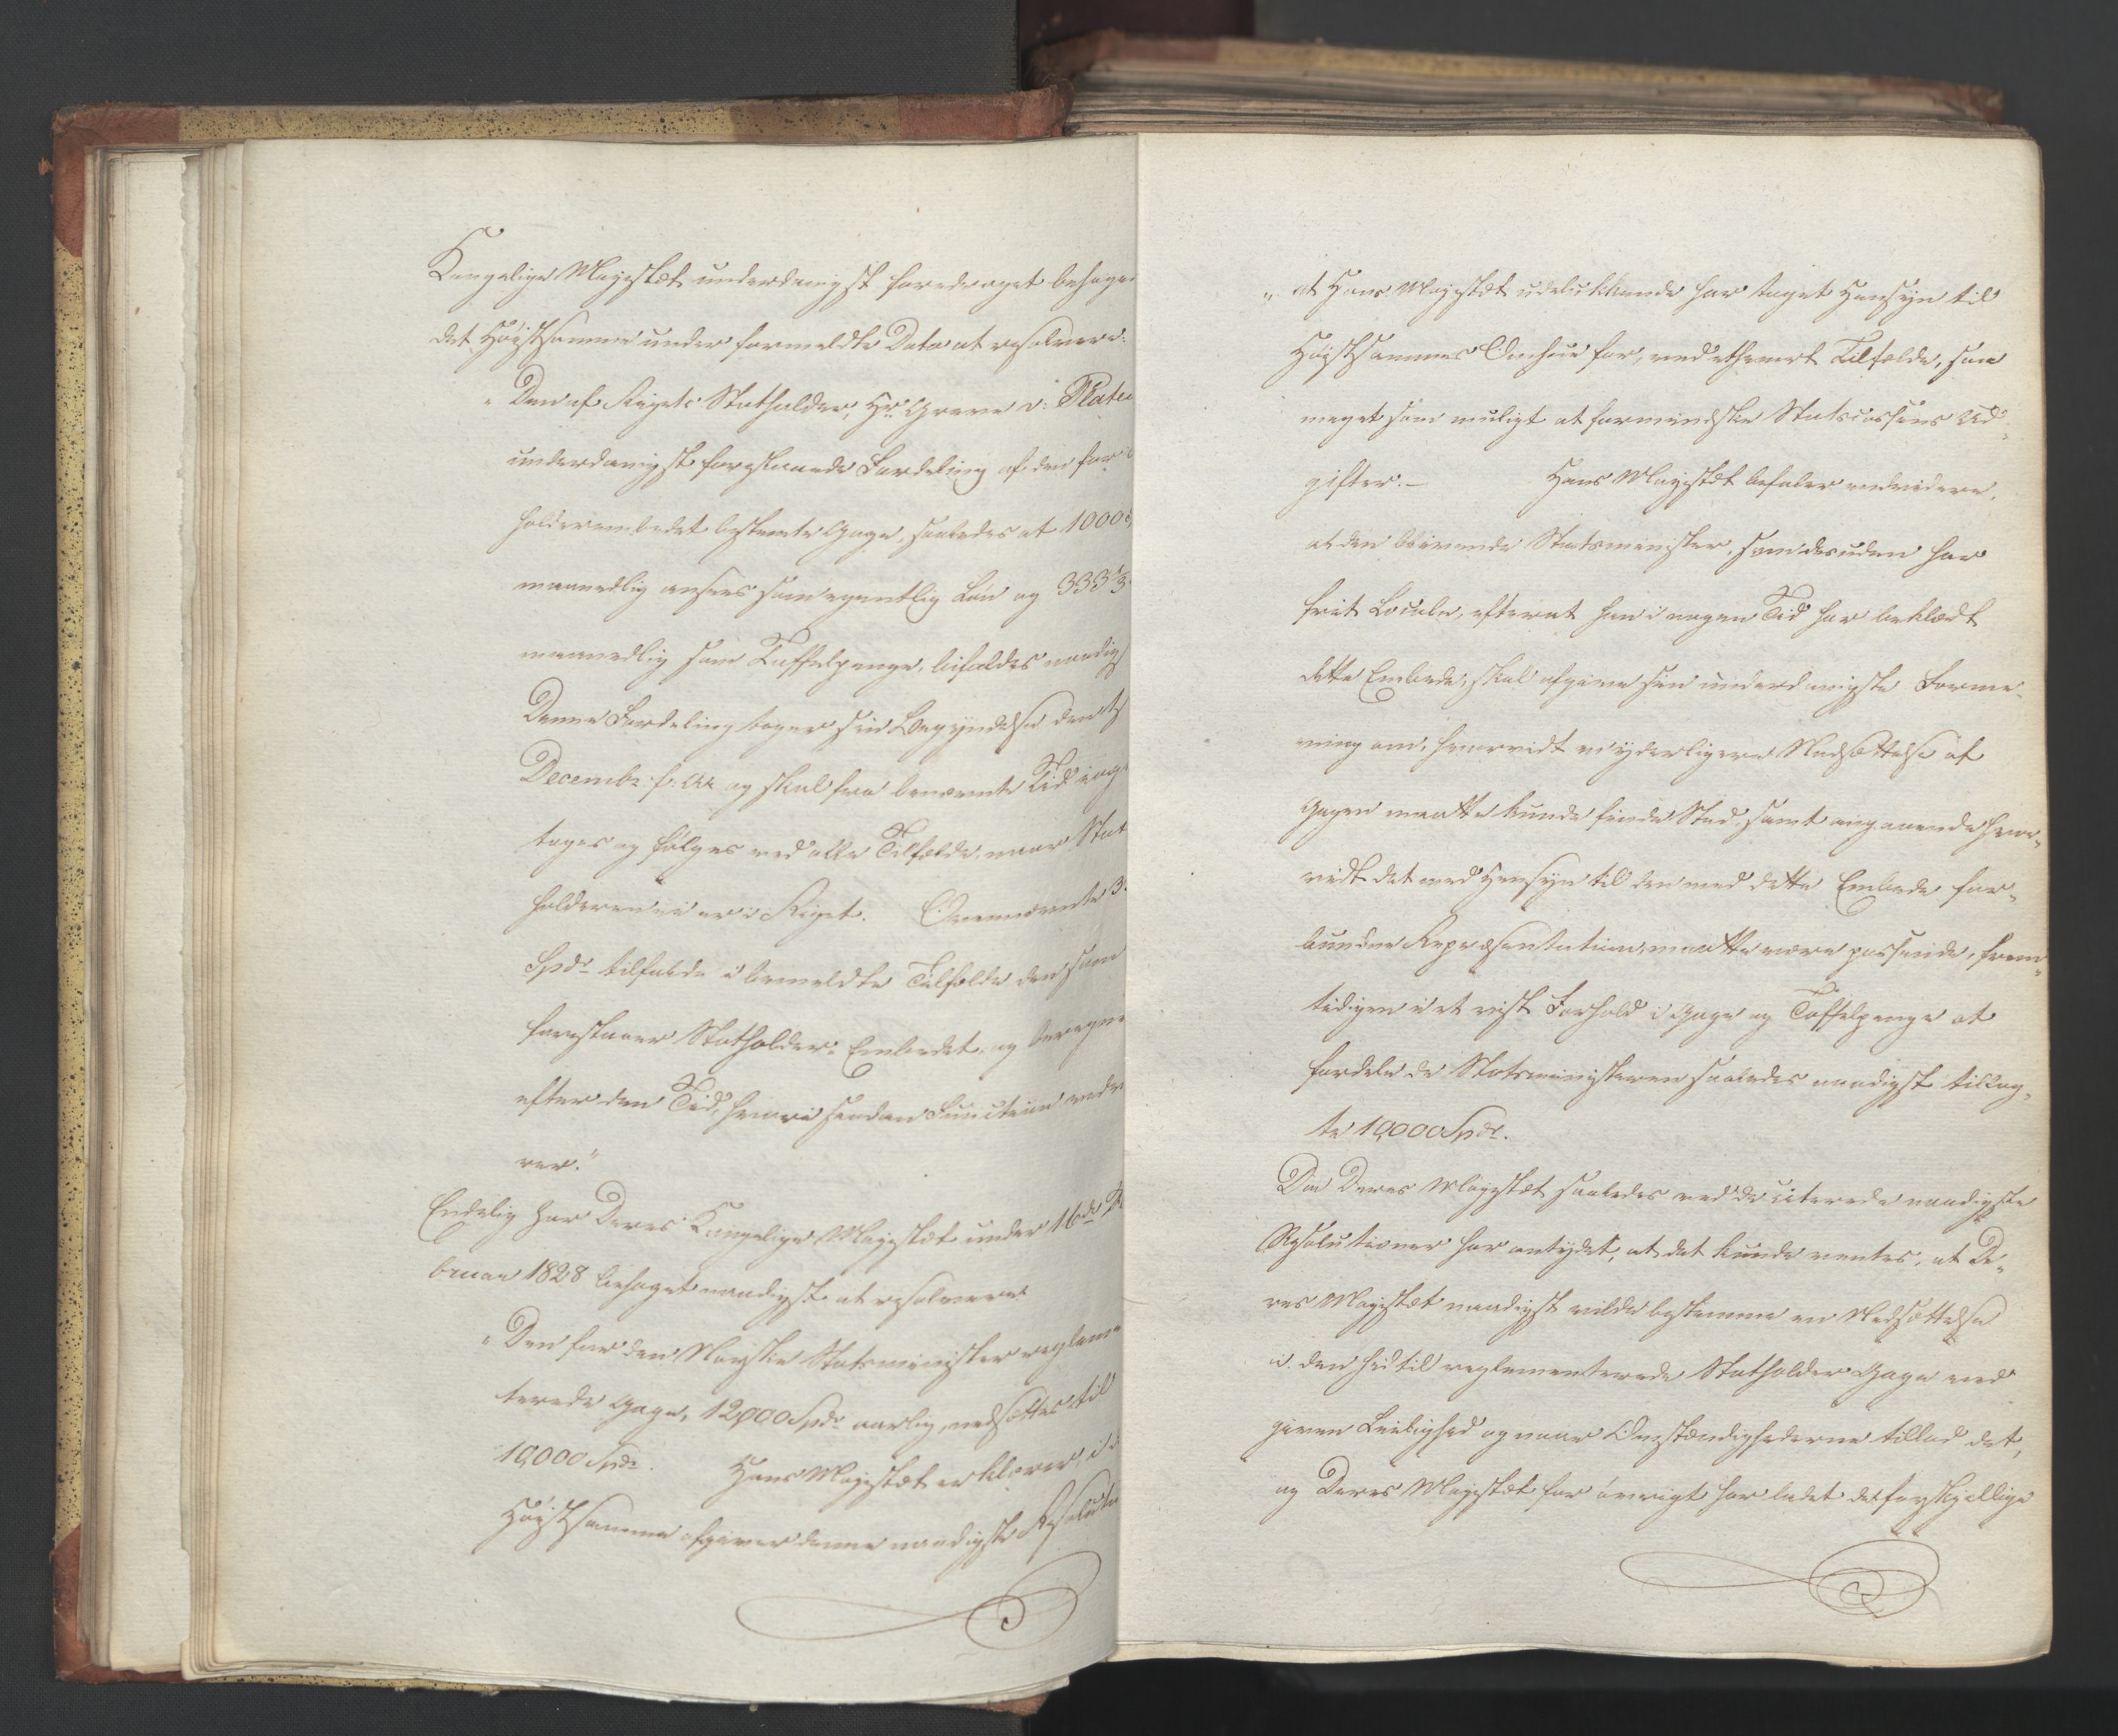 Kongelige Majestæt underdanigst foredraget behage-
det Høistsamme under formeldte Dato at resolvere:
„Den af Rigets Statholder, Hr. Greve v: Platen
underdanigst foreslaaede Fordeling af den for
holderembedet bestemte Gage, saaledes at 1000
maanedlig ansees som egentlig Løn og 333 1/3
maanedlig som Taffelpenge, bifaldes naadigst
Denne Fordeling tager sin Begyndelse den
Decembr. f: Aar og skal fra benævnte Tid
tages og følges ved alle Tilfælde, naar Stat
holderen ei er i Riget. Ovennævnte 3
Spdr tilfalde i bemeldte Tilfælde den som
forestaaer Statholder-Embedet og beregnes
efter den Tid, hvori saadan Function vedva
rer."
Endelig har Deres Kongelige Majestæt under 16de Fe
bruar 1828 behaget naadigst at resolvere
„Den for den Norske Statsminister reglemen
terede Gage, 12,000 Spdr aarlig, nedsættes til
10,000 Spdr. Hans Majestæt erklærer, i
Høistsamme afgiver denne naadigste Resolution
„at Hans Majestæt udelukkende har taget Hensyn til
Høistsammes Omhue for, ved ethvert Tilfælde, saa
meget som muligt at formindske Statscassens Ud-
gifter. – Hans Majestæt befaler endvidere,
at den blivende Statsminister, som desuden har
frit Locale, efterat han i nogen Tid har beklædt
dette Embede, skal afgive sin underdanigste Forme-
ning om, hvorvidt en yderligere Nedsættelse af
Gagen maatte kunde finde Sted, samt angaaende hvor-
vidt det med Hensyn til den med dette Embede for-
bundne Repræsentation, maatte være passende, frem-
tidigen i et vist Forhold i Gage og Taffelpenge at
fordele de Statsministeren saaledes naadigst tillag-
te 10,000 Spdr.
Da Deres Majestæt saaledes ved de citerede naadigste
Resolutioner har antydet, at det kunde ventes, at De-
res Majestæt naadigst vilde bestemme en Nedsættelse
i den hidtil reglementerede Statholder Gage ved
given Leilighed og naar Omstændighederne tillod det,
og Deres Majestæt for øvrigt har ladet de forskjellige